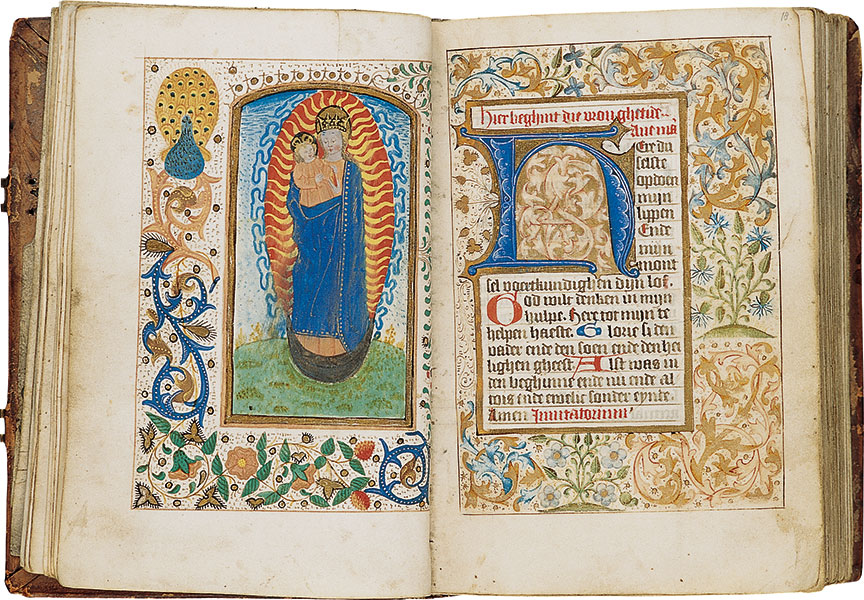 Hier beghint die vrou ghetide
Aue ma
Ere du
selste
opdoen
mijn
lippen
Ende
mijn
mont
sel voertkundighen dijn lof
God wilt denken in mijn
hulpe. Here tot mijn te
helpen haeste. Glorie si den
vader ende den soen ende den hei
lighen gheest Alst was in
den beghinne ende nu ende al
toes ende ewelic sonder eynde.
Amen Inuitatorium